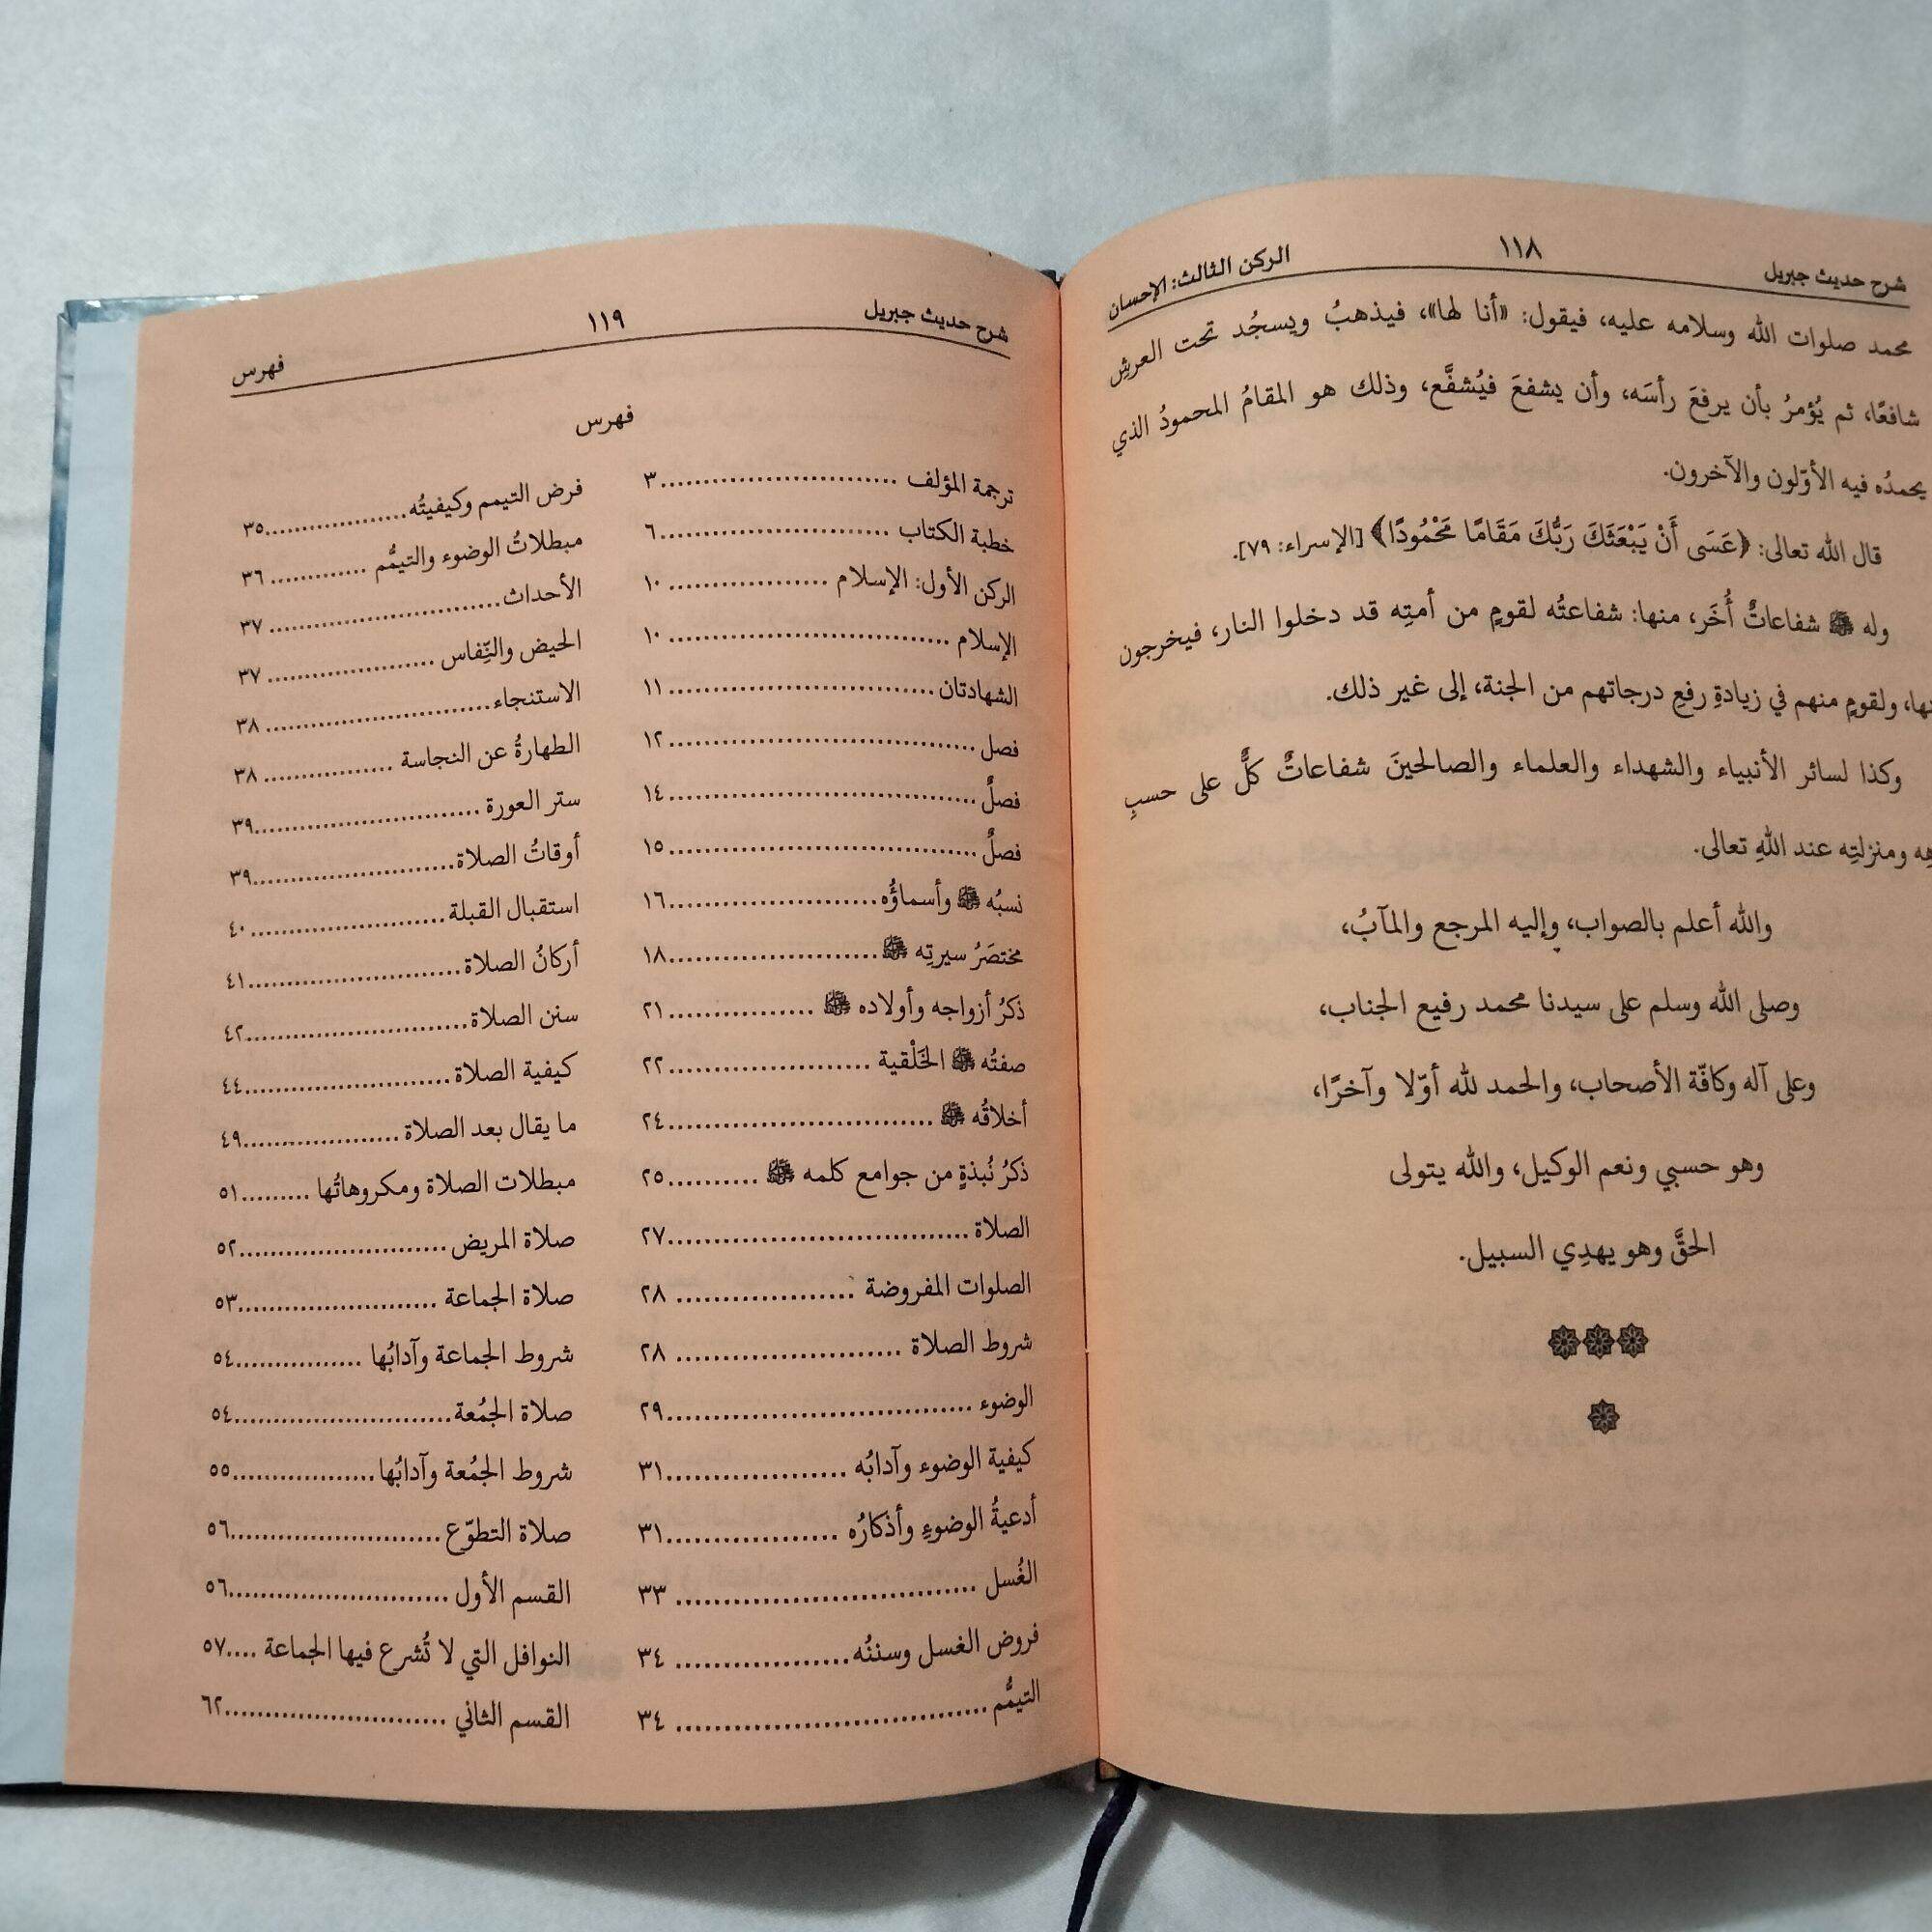 شرح حديث جبريل ١١٨ الركن الثالث: الإحسان
محمد صلوات الله وسلامه عليه، فيقول: «أنا لها»، فيذهبُ ويسجُد تحت العرشِ
شافعًا، ثم يُؤمرُ بأن يرفعَ رأسَه، وأن يشفعَ فيُشفَّع، وذلك هو المقامُ المحمودُ الذي
يحمدُه فيه الأوّلون والآخرون.
قال الله تعالى: ﴿عَسَى أَنْ يَبْعَثَكَ رَبُّكَ مَقَامًا مَحْمُودًا﴾ [الإسراء: ٧٩].
وله ﷺ شفاعاتٌ أُخَر، منها: شفاعتُه لقومٍ من أمتِه قد دخلوا النار، فيخرجون
ولقومٍ منهم في زيادةِ رفعِ درجاتهم من الجنة، إلى غير ذلك.
وكذا لسائر الأنبياء والشهداء والعلماء والصالحينَ شفاعاتٌ كلٌّ على حسبِ
ومنزلتِه عند اللهِ تعالى.
والله أعلم بالصواب، وإليه المرجع والمآبُ،
وصلى الله وسلم على سيدنا محمد رفيع الجناب،
وعلى آله وكافّة الأصحاب، والحمد لله أوّلا وآخرًا،
وهو حسبي ونعم الوكيل، والله يتولى
الحقَّ وهو يهدِي السبيل.
شرح حديث جبريل ١١٩ فهرس
فهرس
ترجمة المؤلف ........................... ٣
خطبة الكتاب ........................... ٦
الركن الأول: الإسلام .................. ١٠
الإسلام ........................... ١٠
الشهادتان ........................... ١١
فصل ........................... ١٢
فصلٌ ........................... ١٤
فصلٌ ........................... ١٥
نسبُه ﷺ وأسماؤُه ........................ ١٦
مختصَرُ سيرتِه ﷺ ........................ ١٨
ذكرُ أزواجه وأولاده ﷺ ............... ٢١
صفتُه ﷺ الخَلْقية ..................... ٢٢
أخلاقُه ﷺ ........................... ٢٤
ذكرُ نُبذةٍ من جوامع كلمه ﷺ .......... ٢٥
الصلاة ........................... ٢٧
الصلوات المفروضة ................... ٢٨
شروط الصلاة ........................ ٢٨
الوضوء ........................... ٢٩
كيفية الوضوء وآدابُه ................... ٣١
أدعيةُ الوضوءِ وأذكارُه .................. ٣١
الغُسل ........................... ٣٣
فروض الغسل وسننُه .................. ٣٤
التيمُّم ........................... ٣٤
فرض التيمم وكيفيتُه ................... ٣٥
مبطلاتُ الوضوء والتيمُّم ............. ٣٦
الأحداث ........................... ٣٧
الحيض والنِّفاس ..................... ٣٧
الاستنجاء ........................... ٣٨
الطهارةُ عن النجاسة ................. ٣٨
ستر العورة ........................... ٣٩
أوقاتُ الصلاة ........................ ٣٩
استقبال القبلة ........................ ٤٠
أركانُ الصلاة ........................ ٤١
سنن الصلاة ........................ ٤٢
كيفية الصلاة ........................ ٤٤
ما يقال بعد الصلاة .................... ٤٩
مبطلات الصلاة ومكروهاتُها ......... ٥١
صلاة المريض ........................ ٥٢
صلاة الجماعة ........................ ٥٣
شروط الجماعة وآدابُها ................. ٥٤
صلاة الجمُعة ........................ ٥٤
شروط الجمُعة وآدابُها ................... ٥٥
صلاة التطوّع ........................ ٥٦
القسم الأول ........................ ٥٦
النوافل التي لا تُشرع فيها الجماعة .... ٥٧
القسم الثاني ........................ ٦٢